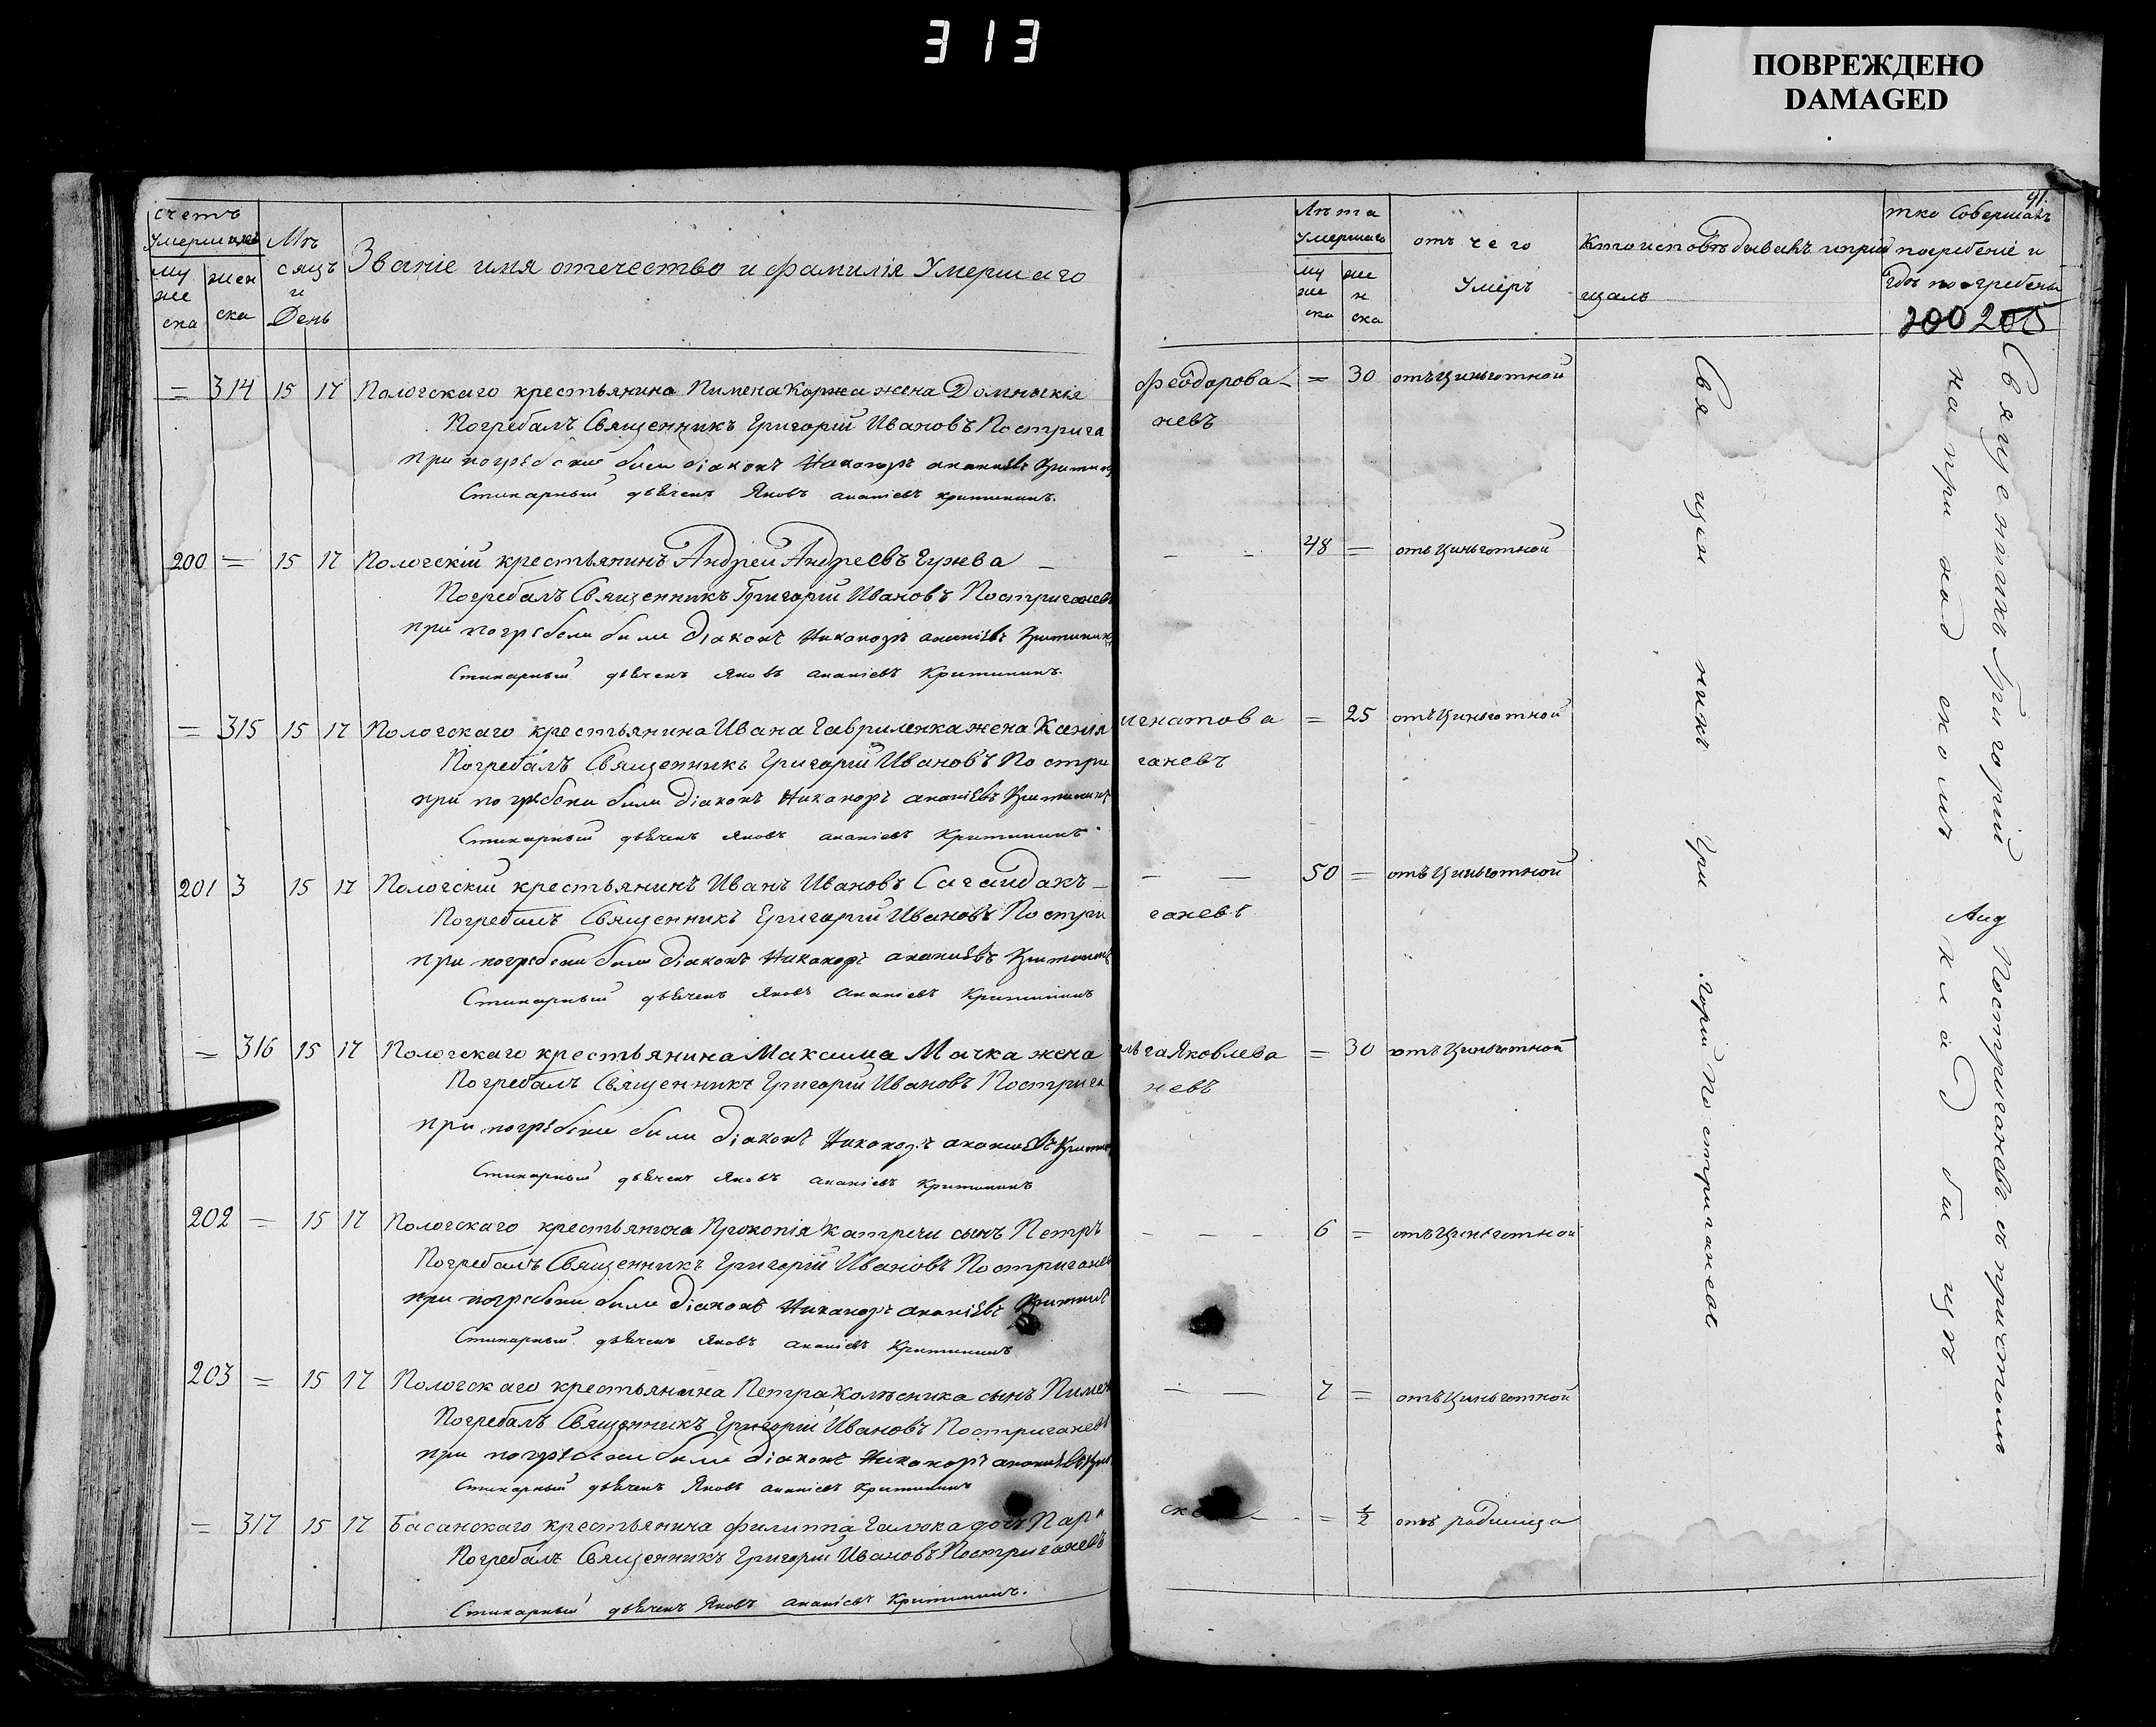 313
ПОВРЕЖДЕНО
DAMAGED
41.
счетъ умершихъ муже ска женска
Мѣсяцъ и День
Званіе имя отечество и фамилія Умершаго
Лѣта Умершаго муже ска жен ска
отъ чего Умеръ
Кто исповѣдывалъ и пріобщалъ
кто Совершалъ погребеніе и гдѣ погребены
200 205
= 314 15 17 Пологскаго крестьянина Пимена Коржа жена Домникія Феодорова = 30 отъ Циньготной
Погребалъ Священникъ Григорій Ивановъ Постриганевъ
при погребеніи были діаконъ Никаноръ ананіевъ
Стихарный дьячекъ Яковъ ананіевъ Критининъ.
200 = 15 17 Пологскій крестьянинъ Андрей Андреевъ Гужва 48 = отъ Циньготной
Погребалъ Священникъ Григорій Ивановъ Постриганевъ
при погребени были діаконъ Никаноръ ананіевъ Критининъ
Стихарный дьячекъ Яковъ ананіевъ Критининъ.
= 315 15 17 Пологскаго крестьянина Ивана Гавриленка жена Ксенія игнатова = 25 отъ Циньготной
Погребалъ Священникъ Григорій Ивановъ Постриганевъ
при погребени были діаконъ Никаноръ ананіевъ Критининъ
Стихарный дьячекъ Яковъ ананіевъ Критининъ.
201 3 15 17 Пологскій крестьянинъ Иванъ Ивановъ Сагайдакъ 50 = отъ Циньготной
Погребалъ Священникъ Григорій Ивановъ Постриганевъ
при погребени были діаконъ Никаноръ ананіевъ Критининъ
Стихарный дьячекъ Яковъ ананіевъ Критининъ
= 316 15 17 Пологскаго крестьянина Максима Мачка жена Яковлева = 30 отъ Циньготной
Погребалъ Священникъ Григорій Ивановъ Постриганевъ
при погребени были діаконъ Никаноръ ананіевъ
Стихарный дьячекъ Яковъ ананіевъ Критининъ
202 = 15 17 Пологскаго крестьянина Прокопія Катречи сынъ Петръ 6 = отъ Циньготной
Погребалъ Священникъ Григорій Ивановъ Постриганевъ
при погребени были діаконъ Никаноръ ананіевъ
Стихарный дьячекъ Яковъ ананіевъ Критининъ
203 = 15 17 Пологскаго крестьянина Петра Колѣсника сынъ Пименъ 7 = отъ Циньготной
Погребалъ Священникъ Григорій Ивановъ Постриганевъ
при погребени были діаконъ Никаноръ ананіевъ
Стихарный дьячекъ Яковъ ананіевъ Критининъ
= 317 15 17 Басанскаго крестьянина Филиппа Галюка дочь = 1/2 отъ родимца
Погребалъ Священникъ Григорій Ивановъ Постриганевъ
Стихарный дьячекъ Яковъ ананіевъ Критининъ.
Священникъ Григорій Постриганевъ
Священникъ Григорій Постриганевъ съ причтомъ
на приходскомъ кладбищѣ